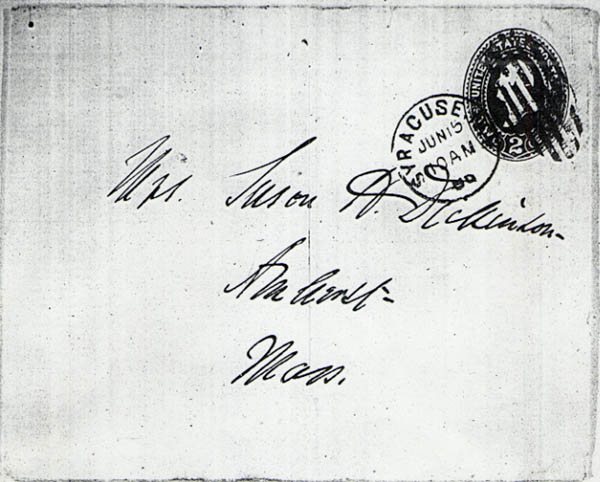 UNITED STATES
2
SYRACUSE
JUN 15
10 AM
Mrs. Susan H. Dickinson
Amherst
Mass.